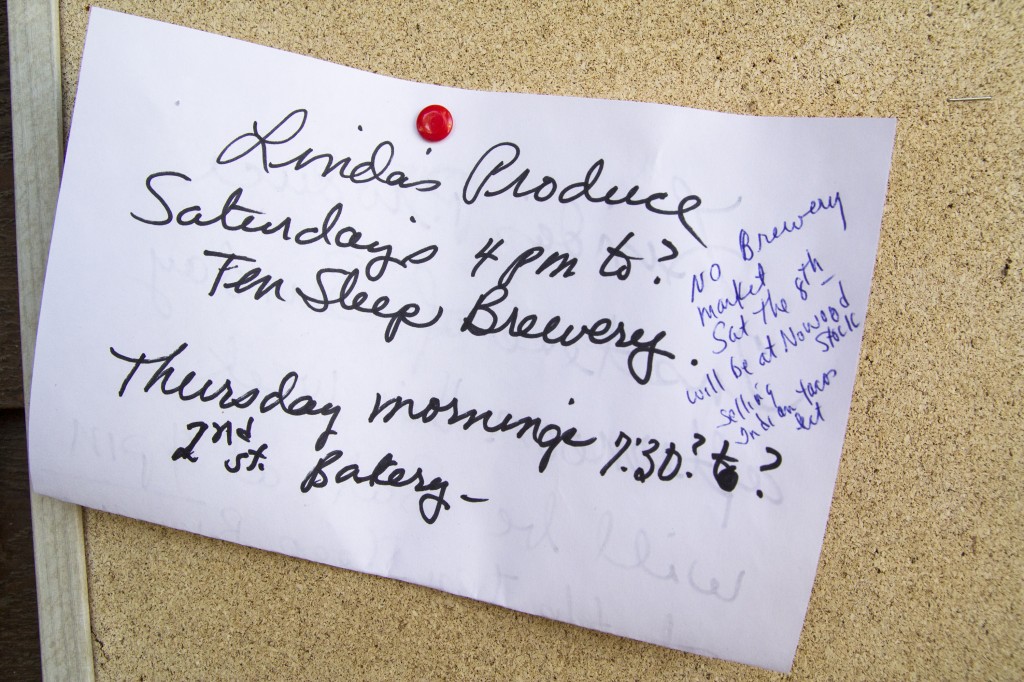 Linda's Produce
Saturday's 4 pm to?
Ten Sleep Brewery.
Thursday mornings 7:30? to ?
2nd St. Bakery -
NO Brewery
market
Sat the 8th
will be at Nowood
Stock
selling
Indian tacos
ect